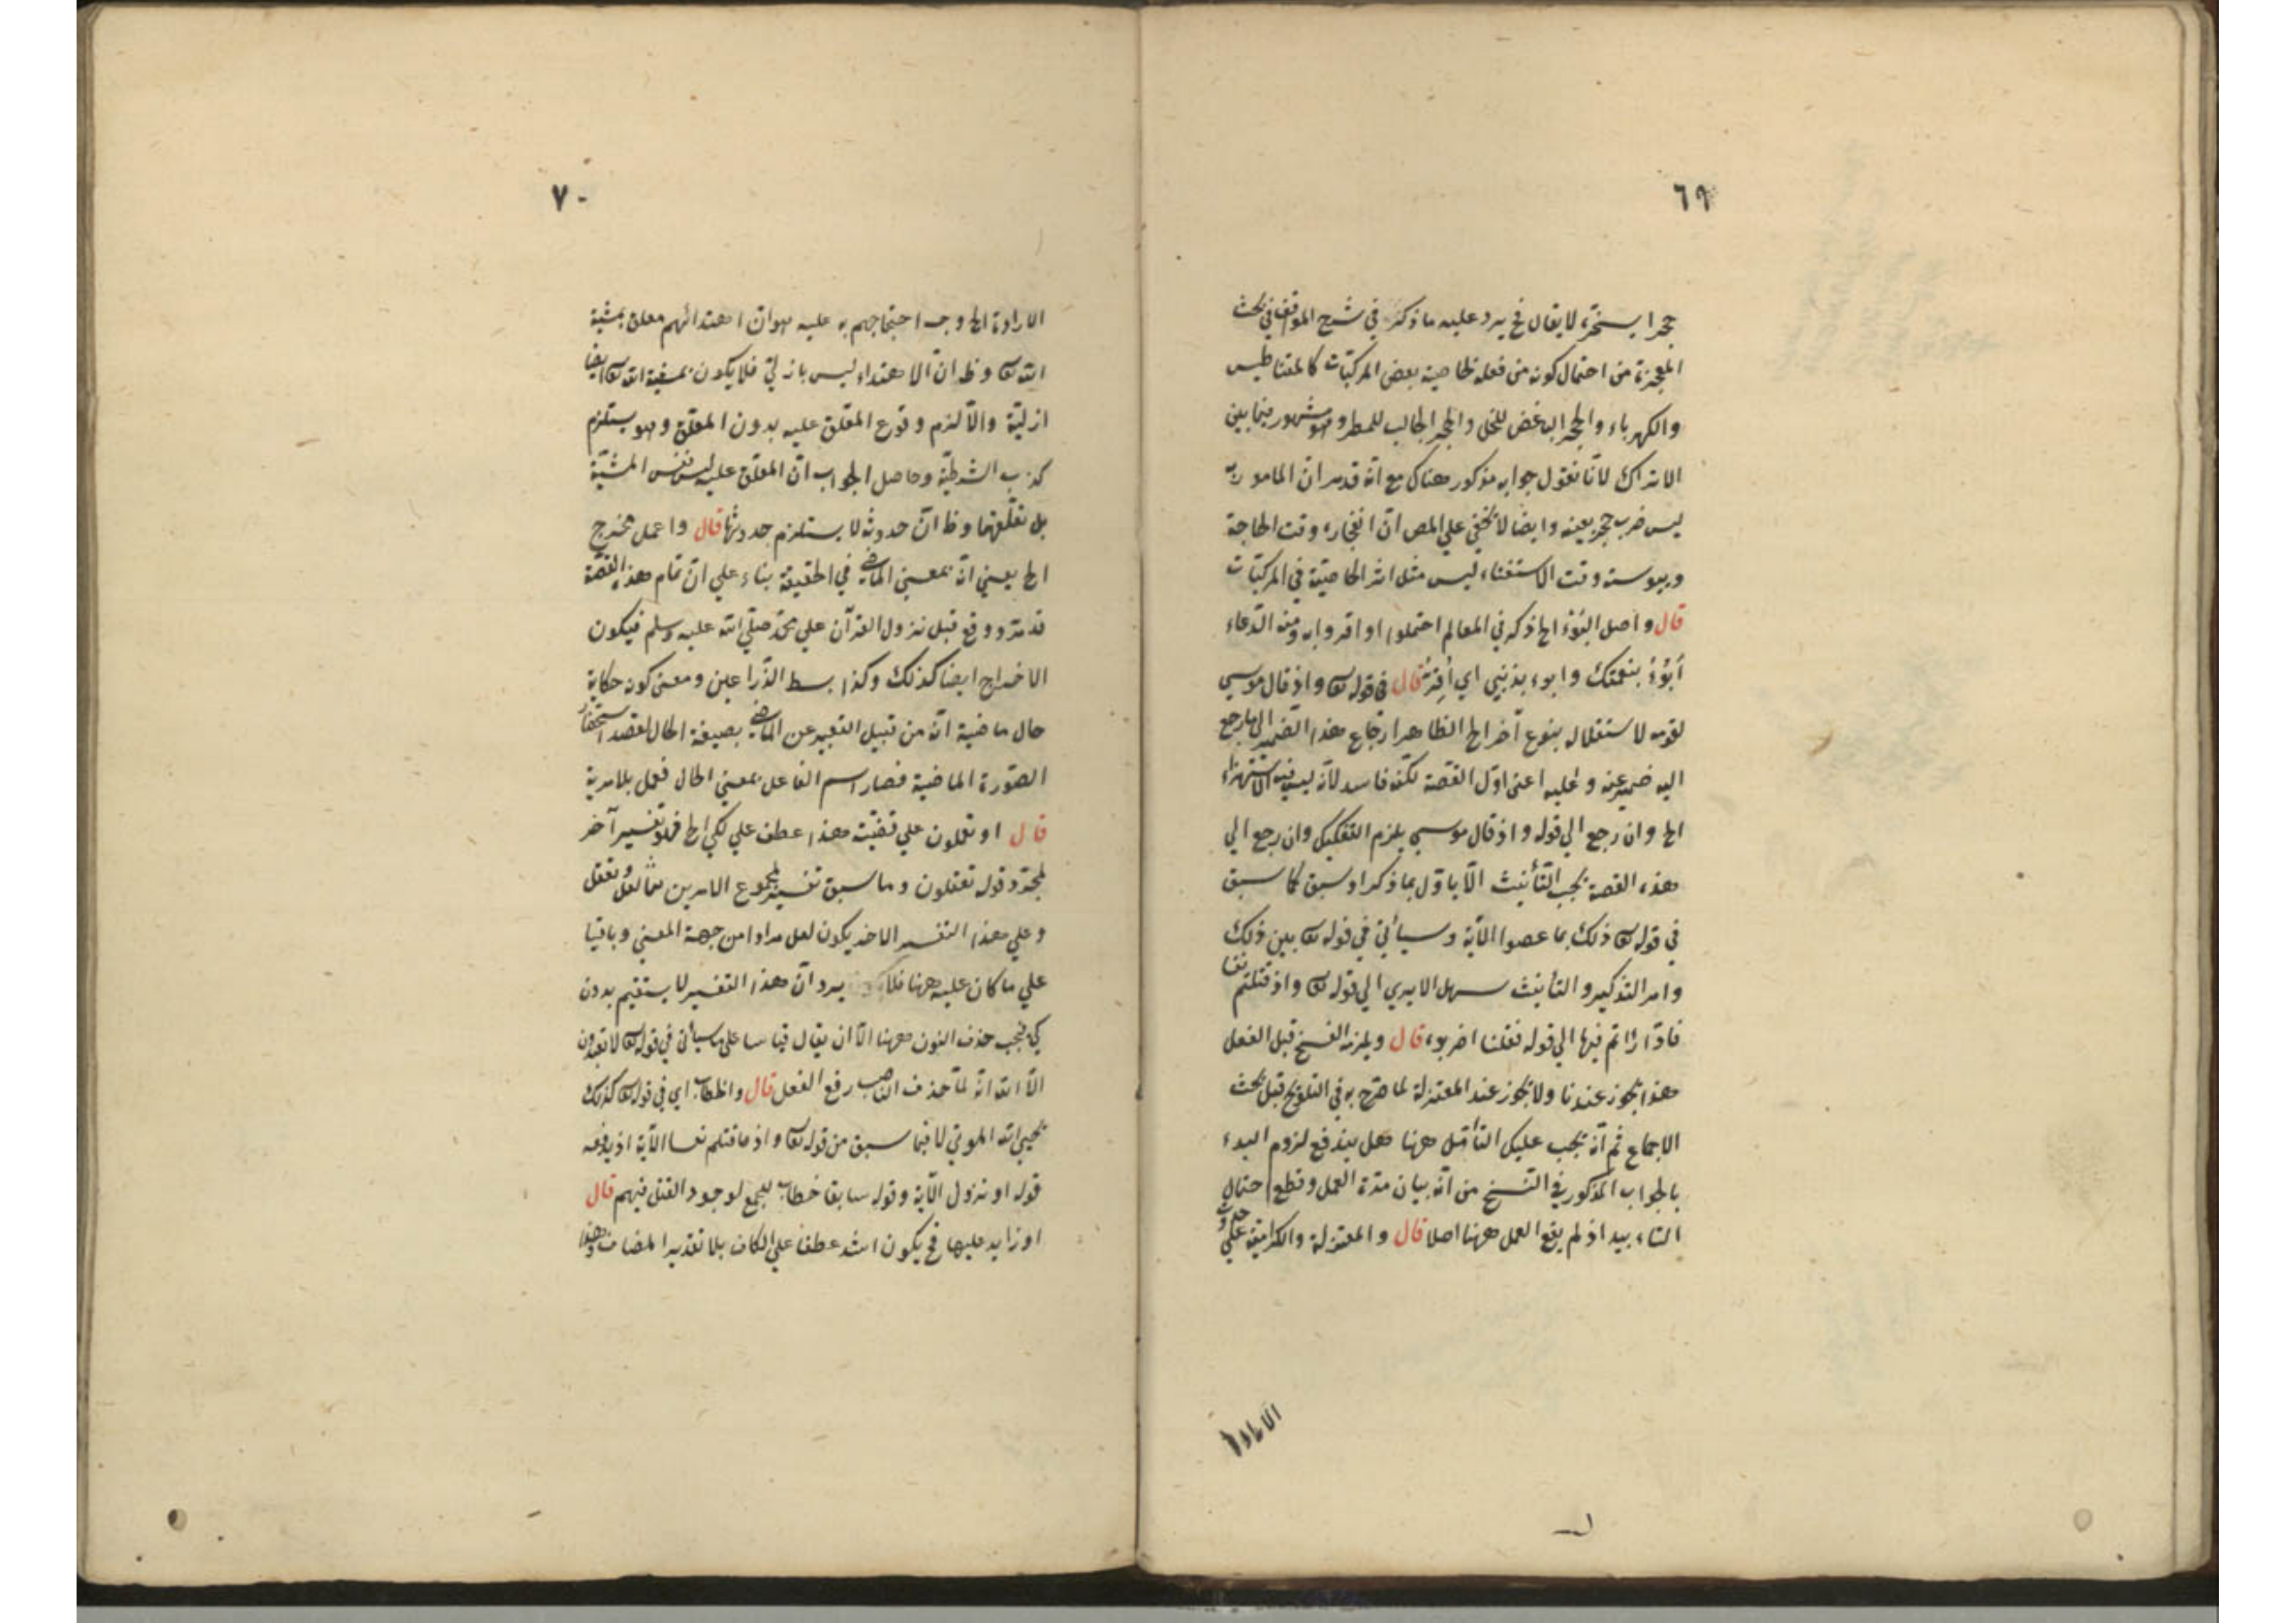 ٦٩
حجرا يسخره لا يقال فح يرد عليه ما ذكره في شرح المواقف في بحث
المعجزة من احتمال كونه من فعله لخاصية بعض المركبات كالمغناطيس
والكهرباء والحجر الباغض للخل والحجر الجالب للمطر وهو مشهور فيما بين
الاتراك لانا نقول جوابه مذكور هناك مع انه قد مر ان المامور به
ليس ضرب حجر بعينه وايضا لا يخفي علي المص ان انفجاره وقت الحاجة
ويبوسته وقت الاستغناء ليس مثل اثر الخاصية في المركبات
قال واصل البوء الخ ذكر في المعالم احتملوا او اقروا به ومنه الدعاء
أبوُءُ بنعمتك وابوء بذنبي اي أُقِرُّ قال في قوله تع واذ قال موسي
لقومه لاستقلاله بنوع آخر الخ الظاهر ارجاع هذا الضمير الي ما رجع
اليه ضمير عنه وعليه اعني اول القصة لكنه فاسد لانه ليس فيه الاستهزاء
الخ وان رجع الي قوله واذ قال موسي يلزم التفكيك وان رجع الي
هذه القصة يجب التأنيث الا ياول بما ذكر او سبق كما سبق
في قوله تع ذلك بما عصوا الآية وسيأتي في قوله تع بين ذلك
وامر التذكير والتأنيث سهل الا يري الي قوله تع واذ قتلتم نفسا
فادّارأتم فيها الي قوله فقلنا اضربوه قال ويلزمه الفسخ قبل الفعل
هذا يجوز عندنا ولا يجوز عند المعتزلة لما صرح به في التلويح قبل بحث
الاجماع ثم انه يجب عليك التأمل ههنا هل يندفع لزوم البدء
بالجواب المذكور في النسخ من انه بيان مدة العمل وقطع احتمال
البقاء بيد اذ لم يقع العمل ههنا اصلا قال والمعتزلة والكرامية علي حدوث
الارادة
٧٠
الارادة الخ وجه احتجاجهم به عليه هو ان اهتدائهم معلق بمشية
الله تع وظ ان الاهتداء ليس بازلي فلا يكون بمشية الله تع ايضا
ازلية والا لزم وقوع المعلق عليه بدون المعلق وهو يستلزم
كذب الشرطية وحاصل الجواب ان المعلق عليه ليس نفس المشية
بل تعلقها وظ ان حدوثه لا يستلزم حدوثها قال واعمل مخرج
الخ يعني انه بمعني الماضي في الحقيقة بناء علي ان تمام هذه القصة
قد مر ووقع قبل نزول القرآن علي محمد صلي الله عليه وسلم فيكون
الاخراج ايضا كذلك وكذا بسط الذراعين ومعني كونه حكاية
حال ماضية انه من قبيل التعبير عن الماضي بصيغة الحال لقصد استحضار
الصورة الماضية فصار اسم الفاعل بمعني الحال فعمل بلا مرية
قال او تعملون علي قضيته هذا عطف علي لكي الخ فهو تفسير آخر
لمجرد قوله تعقلون وما سبق تفسير لمجموع الامرين
وعلي هذا التفسير الاخر يكون لعل مرادا من جهة المعني وباقيا
علي ما كان عليه ههنا فلا يرد ان هذا التفسير لا يستقيم بدون
كي فيجب حذف النون ههنا الا ان يقال قياسا علي ما سيأتي في قوله تع لا تعبدون
الا الله انه لما حذف الناصب رفع الفعل قال والخطاب اي في قوله تع كذلك
يحيي الله الموتي لا فيما سبق من قوله تع واذ قتلتم نفسا الآية اذ يدفعه
قوله او نزول الآية وقوله سابقا خطاب للجمع لوجود القتل فيهم قال
او زايد عليها فح يكون اشد عطفا علي الكاف بلا تقدير المضاف وهذا